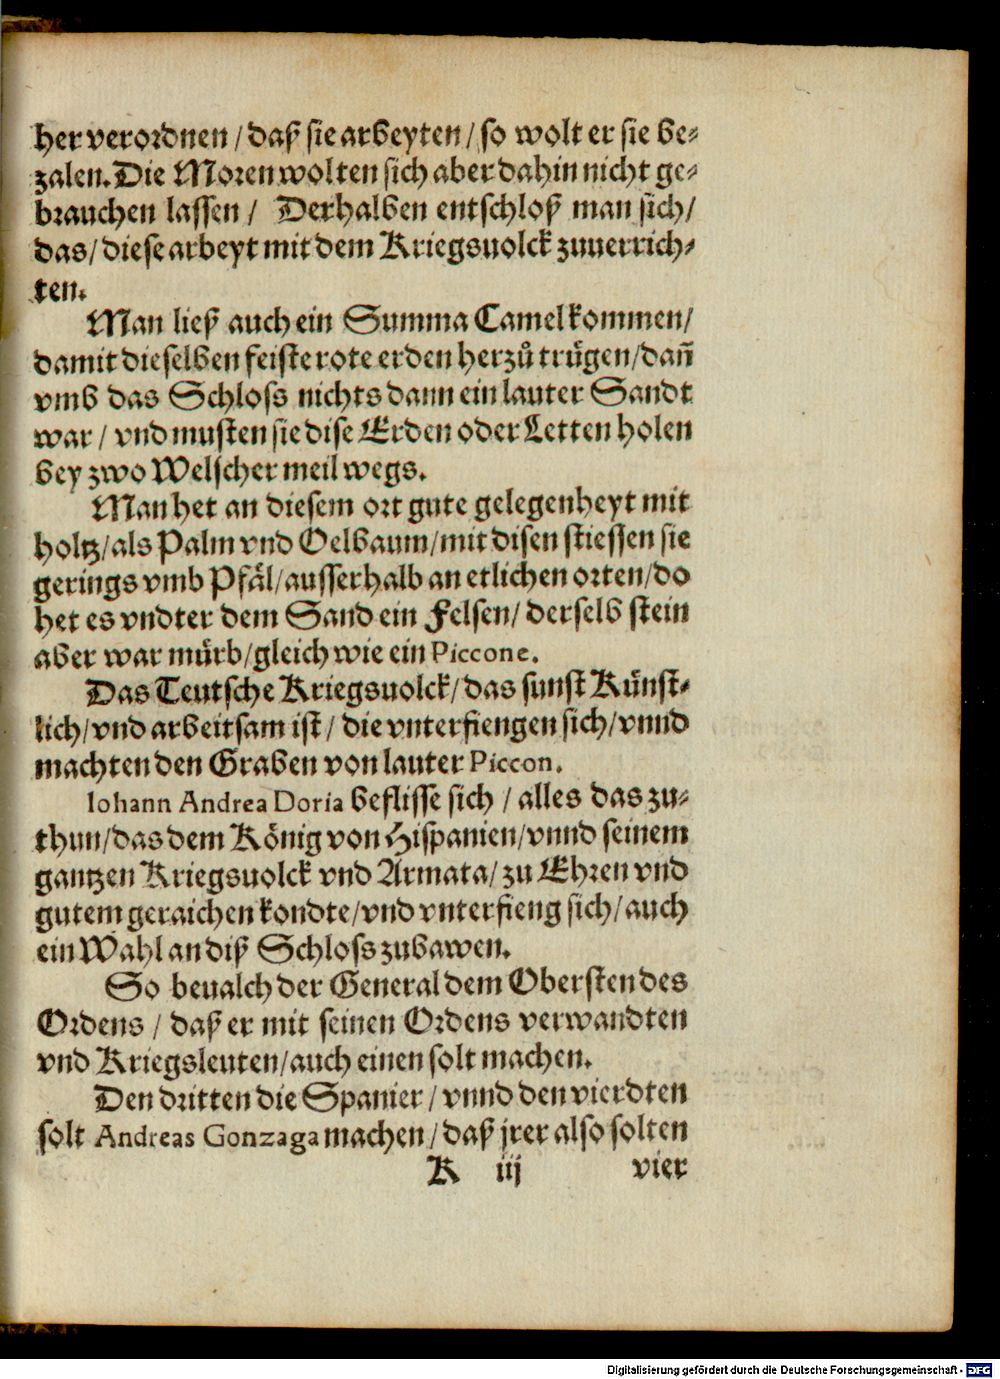 her verordnen / daß sie arbeyten / so wolt er sie be⸗
zalen. Die Moren wolten sich aber dahin nicht ge⸗
brauchen lassen / Derhalben entschloß man sich /
das / diese arbeyt mit dem Kriegsuolck zuuerrich⸗
ten.
Man ließ auch ein Summa Camel kommen /
damit dieselben feiste rote erden herzů trůgen / dañ
vmb das Schloss nichts dann ein lauter Sandt
war / vnd musten sie dise Erden oder Letten holen
bey zwo Welscher meil wegs.
Man het an diesem ort gute gelegenheyt mit
holtz / als Palm vnd Oelbaum / mit disen stiessen sie
gerings vmb Pfäl / ausserhalb an etlichen orten / do
het es vndter dem Sand ein Felsen / derselb stein
aber war mürb / gleich wie ein Piccone.
Das Teutsche Kriegsuolck / das sunst Künst⸗
lich / vnd arbeitsam ist / die vnterfiengen sich / vnnd
machten den Graben von lauter Piccon.
Iohann Andrea Doria beflisse sich / alles das zu⸗
thun / das dem König von Hispanien / vnnd seinem
gantzen Kriegsuolck vnd Armata / zu Ehren vnd
gutem geraichen kondte / vnd vnterfieng sich / auch
ein Wahl an diß Schloss zubawen.
So beualch der General dem Obersten des
Ordens / daß er mit seinen Ordens verwandten
vnd Kriegsleuten / auch einen solt machen.
Den dritten die Spanier / vnnd den vierdten
solt Andreas Gonzaga machen / daß jrer also solten
K iij vier
Digitalisierung gefördert durch die Deutsche Forschungsgemeinschaft - DFG